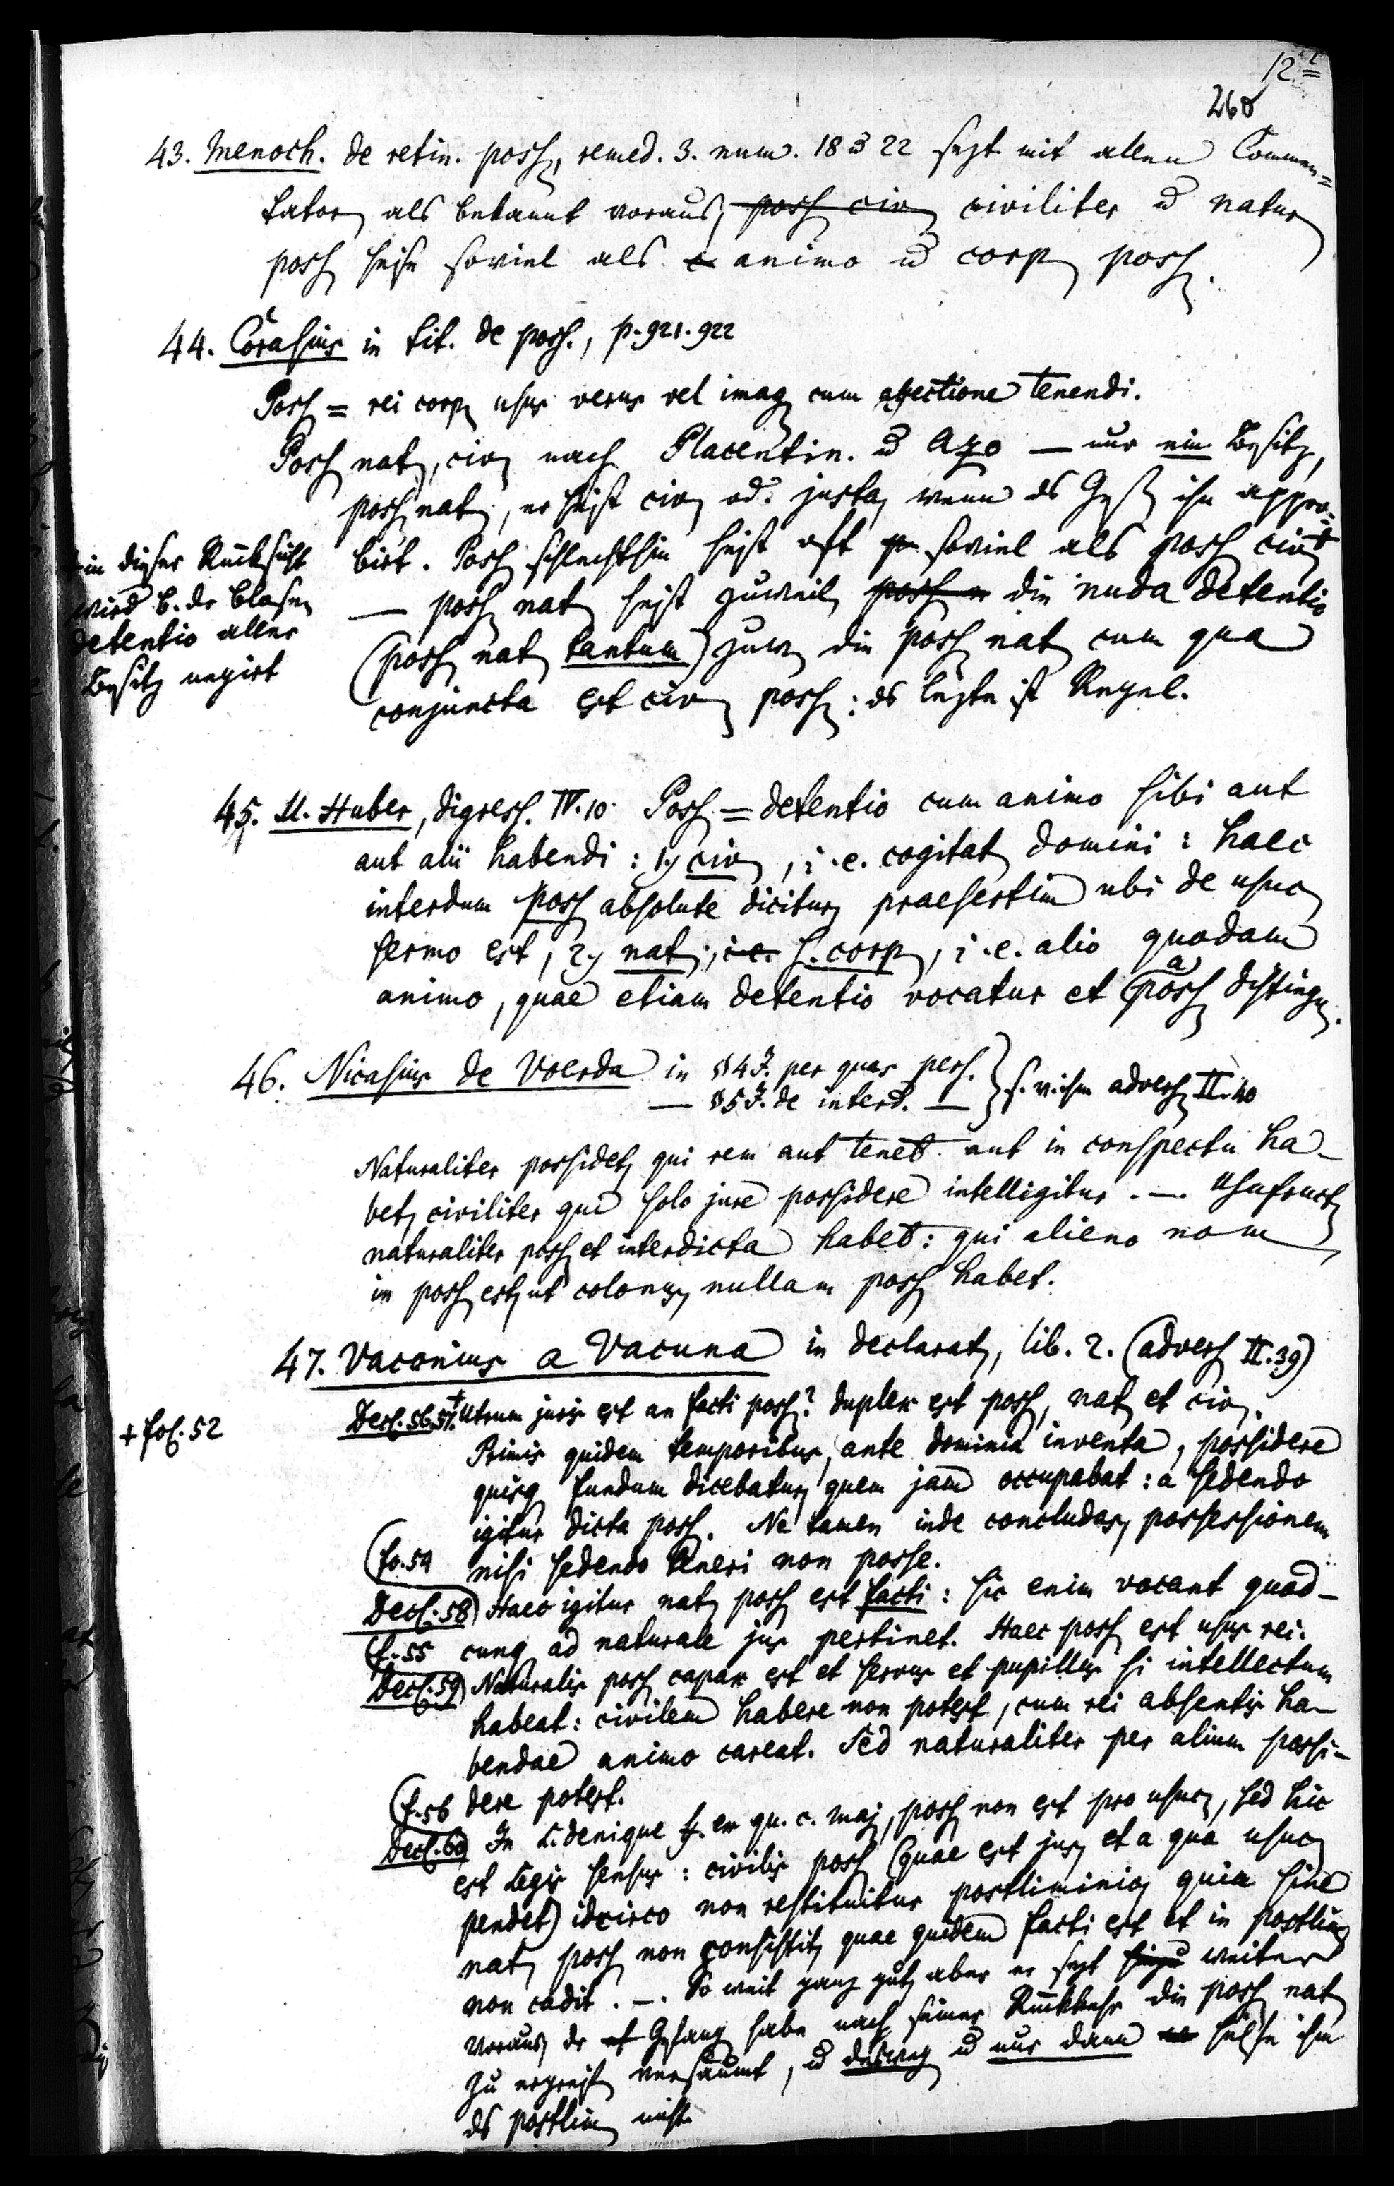 12
260
43. Menoch. de retin. poss, remed. 3. num. 18 u 22 sezt mit allen Commen=
tator als bekannt voraus, poss civ civiliter u natur
poss heise soviel als c animo u corp poss.
44. Corasius in tit. de poss., p. 921. 922
Poss = rei corp usus verus vel imag cum affectione tenendi.
Poss nat, civ nach Placentin. u Azo — nur ein Besitz,
poss nat, er heist civ od. justa, wenn ds Gesetz ihn appro=
birt. Poss schlechthin heist oft soviel als poss civ +
— poss nat heist zuweil poss n die nuda detentio
(poss nat tantum) zuw die poss nat cum qua
conjuncta est civ poss: ds lezte ist Regel.
+ in dieser Rücksicht
wird b. der blosen
detentio aller
Besitz negirt
45. U. Huber, digress. IV. 10. Poss. = detentio cum animo sibi aut
aut alii habendi: 1) civ, i.e. cogitat domini: haec
interdum poss absolute dicitur, praesertim ubi de usuc
sermo est, 2) nat, i.e. s. corp, i.e. alio quodam
animo, quae etiam detentio vocatur et a poss distingu.
46. Nicasius de Voerda in § 4 J. per quas pers.
— § 5 J. de interd. — } s. advers II. 40
Naturaliter possidet, qui rem aut tenet aut in conspectu ha-
bet, civiliter qui solo jure possidere intelligitur. —. Usufruct
naturaliter poss et interdicta habet: qui alieno nom
in poss est, ut colonus, nullam poss habet.
47. Vaconius a Vacuna in declarat, lib. 2. (advers II. 39)
Decl. 56. 57. + Utrum juris est an facti poss? duplex est poss, nat et civ.
+ fol. 52
Primis quidem temporibus, ante dominia inventa, possidere
quisq fundum dicebatur, quem jam occupabat: a sedendo
igitur dicta poss. Ne tamen inde concludas, possessionem
(fo. 54 nisi sedendo teneri non posse.
Decl. 58) Haec igitur nat poss est facti: sic enim vocant quod-
(f. 55 cunq ad naturale jus pertinet. Haec poss est usus rei.
Decl. 59) Naturalis poss capax est et servus et pupillus si intellectum
habeat: civilem habere non potest, cum rei absentis ha-
bendae animo careat. Sed naturaliter per alium possi-
(f. 56 dere potest.
Decl. 60) In L. denique ff. ex qu. c. maj, poss non est pro usuc, sed hic
est legis sensus: civilis poss (quae est jus, et a qua usuc
pendet) idcirco non restituitur postliminio, quia sine
nat poss non consistit, quae quidem facti est et in postlim
non cadit. —. So weit ganz gut, aber er sezt hinzu weiter
voraus, der Gefang habe nach seiner Rückkehr die poss nat
zu ergreif versäumt, u deswg u nur dann hülfe ihm
ds postlim nicht.